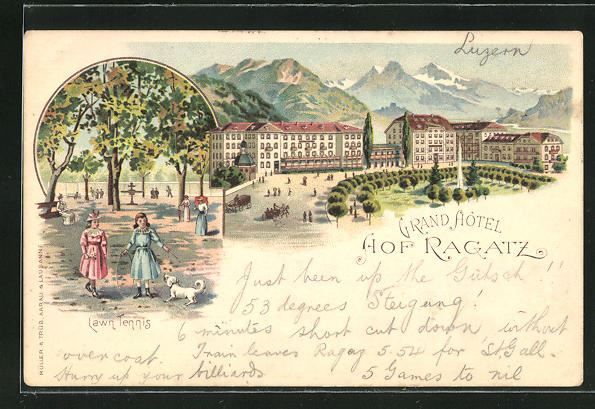 Luzern
GRAND HÔTEL
HOF RAGATZ
Lawn Tennis
MÜLLER & TRÜB, AARAU & LAUSANNE
Just been up the Gütsch!!
53 degrees Steigung!
6 minutes short cut down without
overcoat. Train leaves Ragaz 5.54 for St Gall.
Hurry up your billiards
5 Games to nil